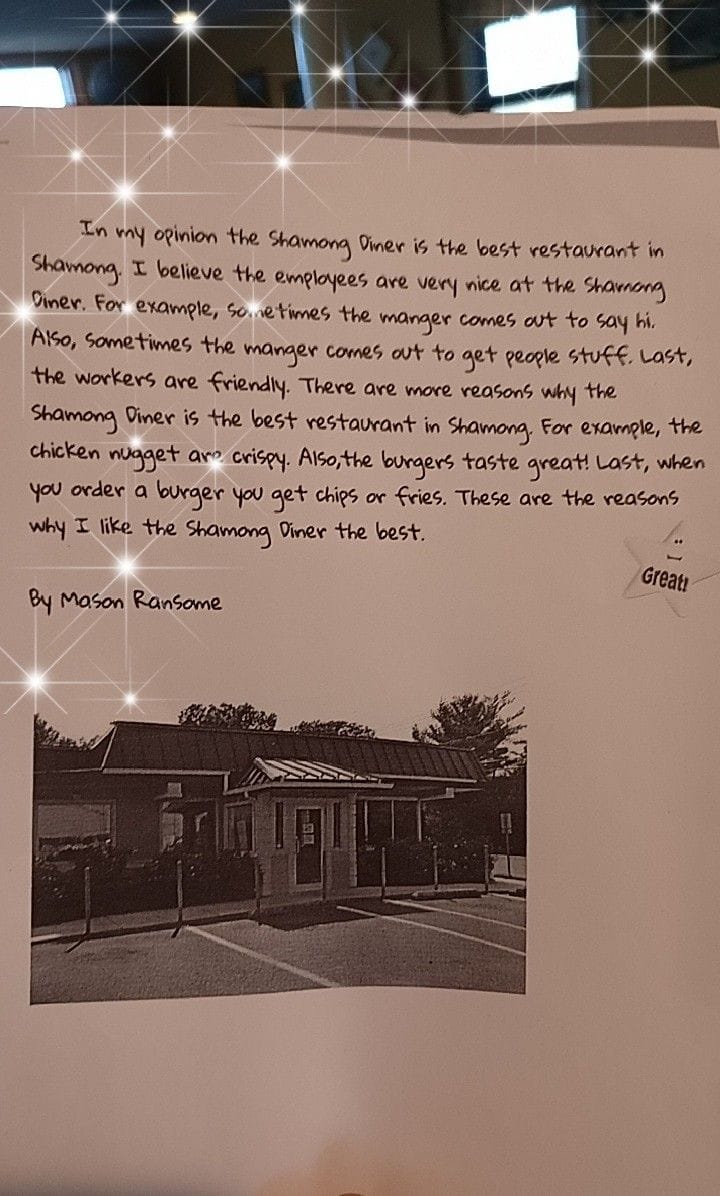 In my opinion the Shamong Diner is the best restaurant in
Shamong. I believe the employees are very nice at the Shamong
Diner. For example, sometimes the manger comes out to say hi.
Also, sometimes the manger comes out to get people stuff. Last,
the workers are friendly. There are more reasons why the
Shamong Diner is the best restaurant in Shamong. For example, the
chicken nugget are crispy. Also,the burgers taste great! Last, when
you order a burger you get chips or fries. These are the reasons
why I like the Shamong Diner the best.
Great!
By Mason Ransome